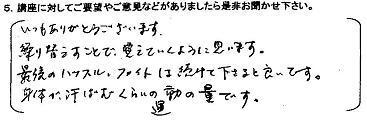 5. 講座に対してご要望やご意見などがありましたら是非お聞かせ下さい。
いつもありがとうございます。
繰り替えすことで、覚えていくように思います。
最後のハッスル、ファイトは続けて下さると良いです。
身体が、汗ばむくらいの運動の量です。